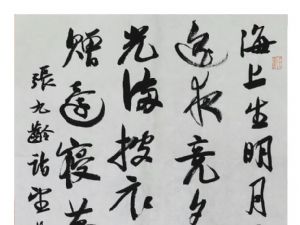 海上生明月
遙夜竟夕
光滿披衣
贈還寢夢
張九齡詩望